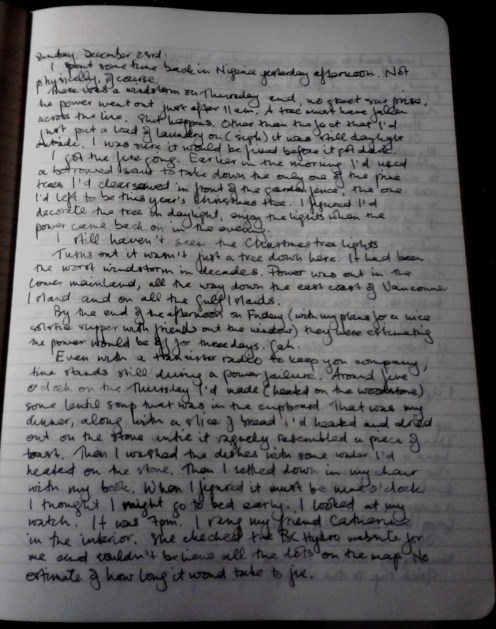 Sunday, December 23rd.
I spent some time back in Nigeria yesterday afternoon. Not
physically, of course.
There was a windstorm on Thursday and, no great surprise,
the power went out just after 11 am. A tree must have fallen
across the line. Shit happens. Other than the fact that I'd
just put a load of laundry on (sigh) it was still daylight
outside. I was sure it would be fixed before it got dark.
I got the fire going. Earlier in the morning I'd used
a borrowed saw to take down the only one of the pine
trees I'd clearsawed in front of the garden fence, the one
I'd left to be this year's Christmas tree. I figured I'd
decorate the tree in daylight, enjoy the lights when the
power came back on in the evening.
I still haven't seen the Christmas tree lights
Turns out it wasn't just a tree down here. It had been
the worst windstorm in decades. Power was out in the
lower mainland, all the way down the east coast of Vancouver
Island and on all the Gulf Islands.
By the end of the afternoon on Friday (with my plans for a nice
solstice supper with friends out the window) they were estimating
the power would be off for three days. Gah.
Even with a transistor radio to keep you company,
time stands still during a power failure. Around five
o'clock on the Thursday I'd made (heated on the woodstove)
some lentil soup that was in the cupboard. That was my
dinner, along with a slice of bread I'd heated and dried
out on the stove until it vaguely resembled a piece of
toast. Then I washed the dishes with some water I'd
heated on the stove. Then I settled down in my chair
with my book. When I figured it must be nine o'clock
I thought I might go to bed early. I looked at my
watch. It was 7pm. I rang my friend Catherine
in the interior. She checked the BC Hydro website for
me and couldn't believe all the dots on the map. No
estimate of how long it would take to fix.